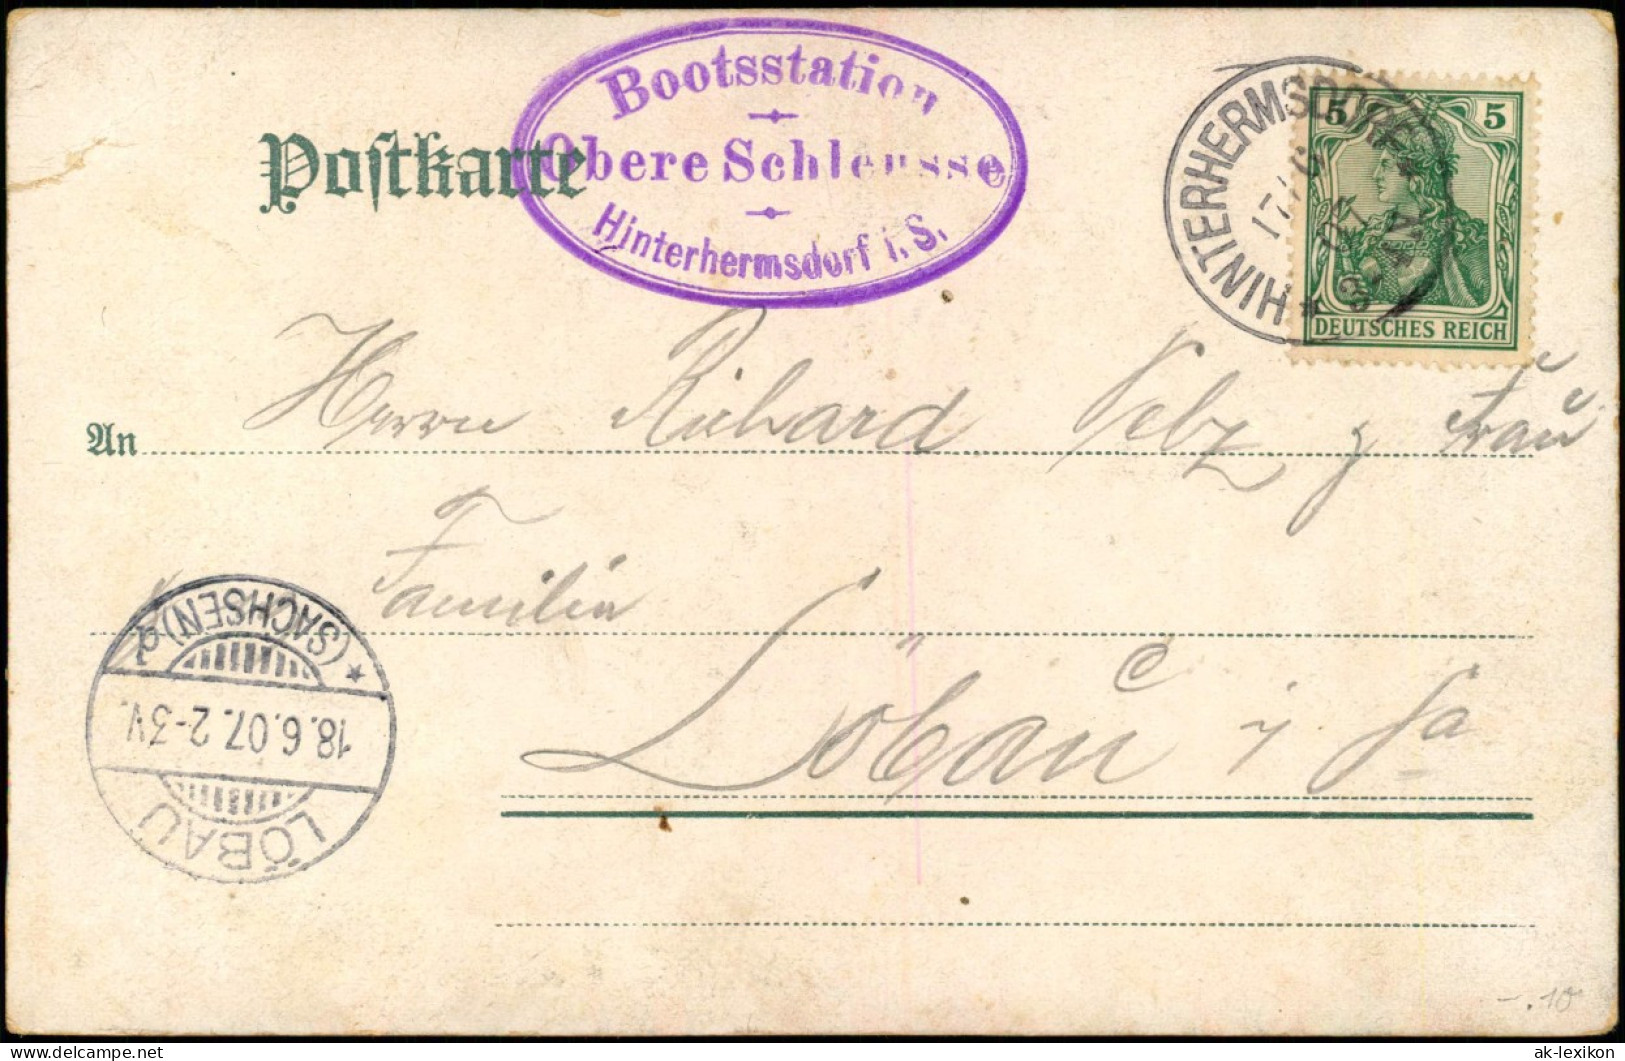 Bootsstation
Obere Schleusse
Hinterhermsdorf i. S.
Postkarte
HINTERHERMSDORF
17/6
07
8-9V
5 5
DEUTSCHES REICH
An Herrn Richard Velz Frau
Familie
Löbau i Sa
LÖBAU
18.6.07. 2-3V.
* (SACHSEN)
-.10
ak-lexikon